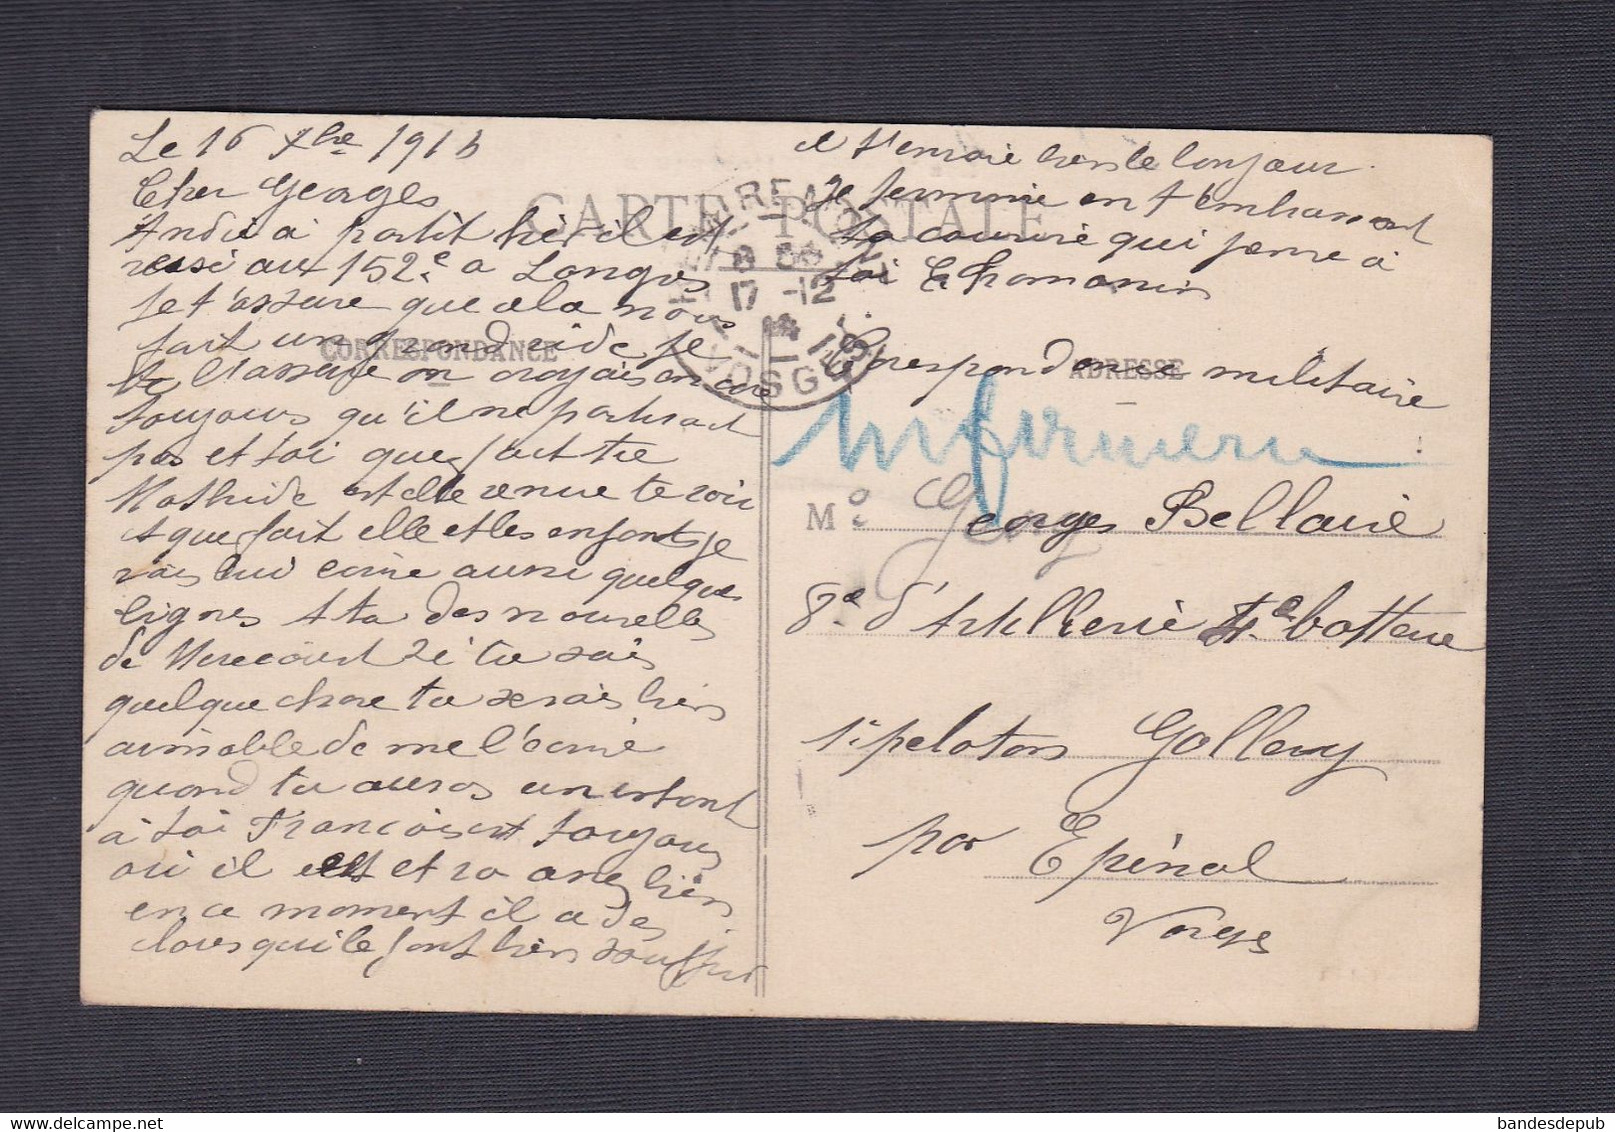 Le 16 Xbre 1914
Cher Georges
André a partit hier il est
au 152e a Langres
Je t'assure que cela nous
fait un grand vide je
te l'assure on croyais encore
toujours qu'il ne partirait
pas et toi que fait tu
Mathilde est elle venue te voir
et que fait elle et les enfants je
vais lui écrire aussi quelque
lignes t tu des nouvelles
de si tu sais
quelque chose tu serais bien
aimable de me l'ecrire
quand tu auras un instant
à toi François est toujours
où il est et va assez bien
en ce moment il a des
clous qui le font bien souffrir
il t'envoie bien le bonjour.
Je termine en t'embrassant
ta cousine qui pense à
toi E Thomassin
CARTE POSTALE
CORRESPONDANCE
ADRESSE
8 30
17 -12
14
VOSGES
Correspondence militaire
Infirmerie
M. Georges Bellaire
8e d'Artillerie 4e batterie
1r peloton Golbey
par Epinal
Vosges
bandesdepub